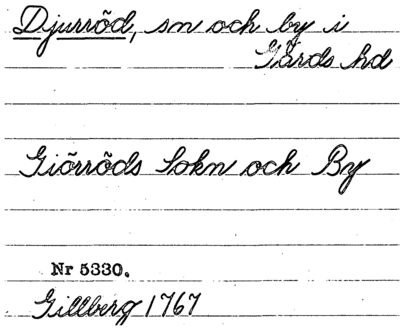 Djurröd, sn och by i
Gärds hd
Giörröds Sokn och By
Nr 5330.
Gillberg 1767